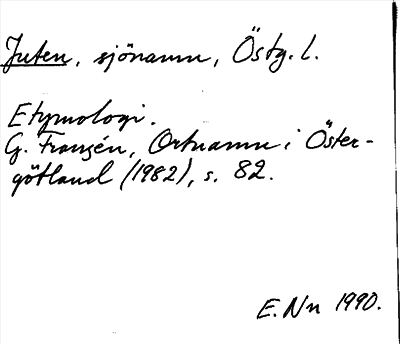 Juten, sjönamn, Östg. l.
Etymologi.
G. Franzén, Ortnamn i Öster-
götland (1982), s. 82.
E. Nn 1990.